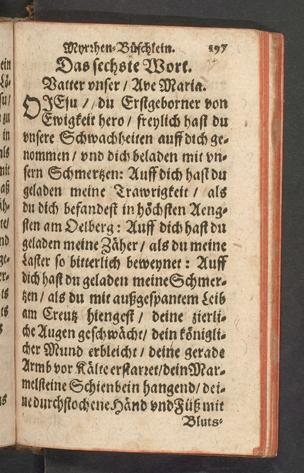 Myrrhen-Büschlein. 197
Das sechste Wort.
Vatter vnser / Ave Maria.
O JEsu / du Erstgeborner von
Ewigkeit hero / freylich hast du
vnsere Schwachheiten auff dich ge-
nommen / vnd dich beladen mit vn-
sern Schmertzen: Auff dich hast du
geladen meine Trawrigkeit / als
du dich befandest in höchsten Aeng-
sten am Oelberg: Auff dich hast du
geladen meine Zäher / als du meine
Laster so bitterlich beweynet: Auff
dich hast du geladen meine Schmer-
tzen / als du mit außgespantem Leib
am Creutz hiengest / deine zierli-
che Augen geschwächt / dein königli-
cher Mund erbleicht / deine gerade
Armb vor Kälte erstarret / dein Mar-
melsteine Schienbein hangend / dei-
ne durchstochene Händ vnd Füß mit
Bluts-